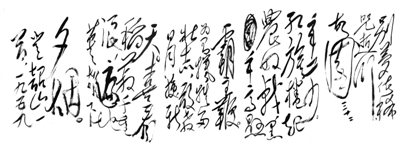 别梦依稀
咒逝川
故园三十二
年前
红旗卷起
农奴戟黑
手高悬
霸主鞭
为有牺牲多
壮志敢教
日月换新
天喜看
稻菽千重
浪遍地
英雄下
夕烟
登韶山一
首一九五九